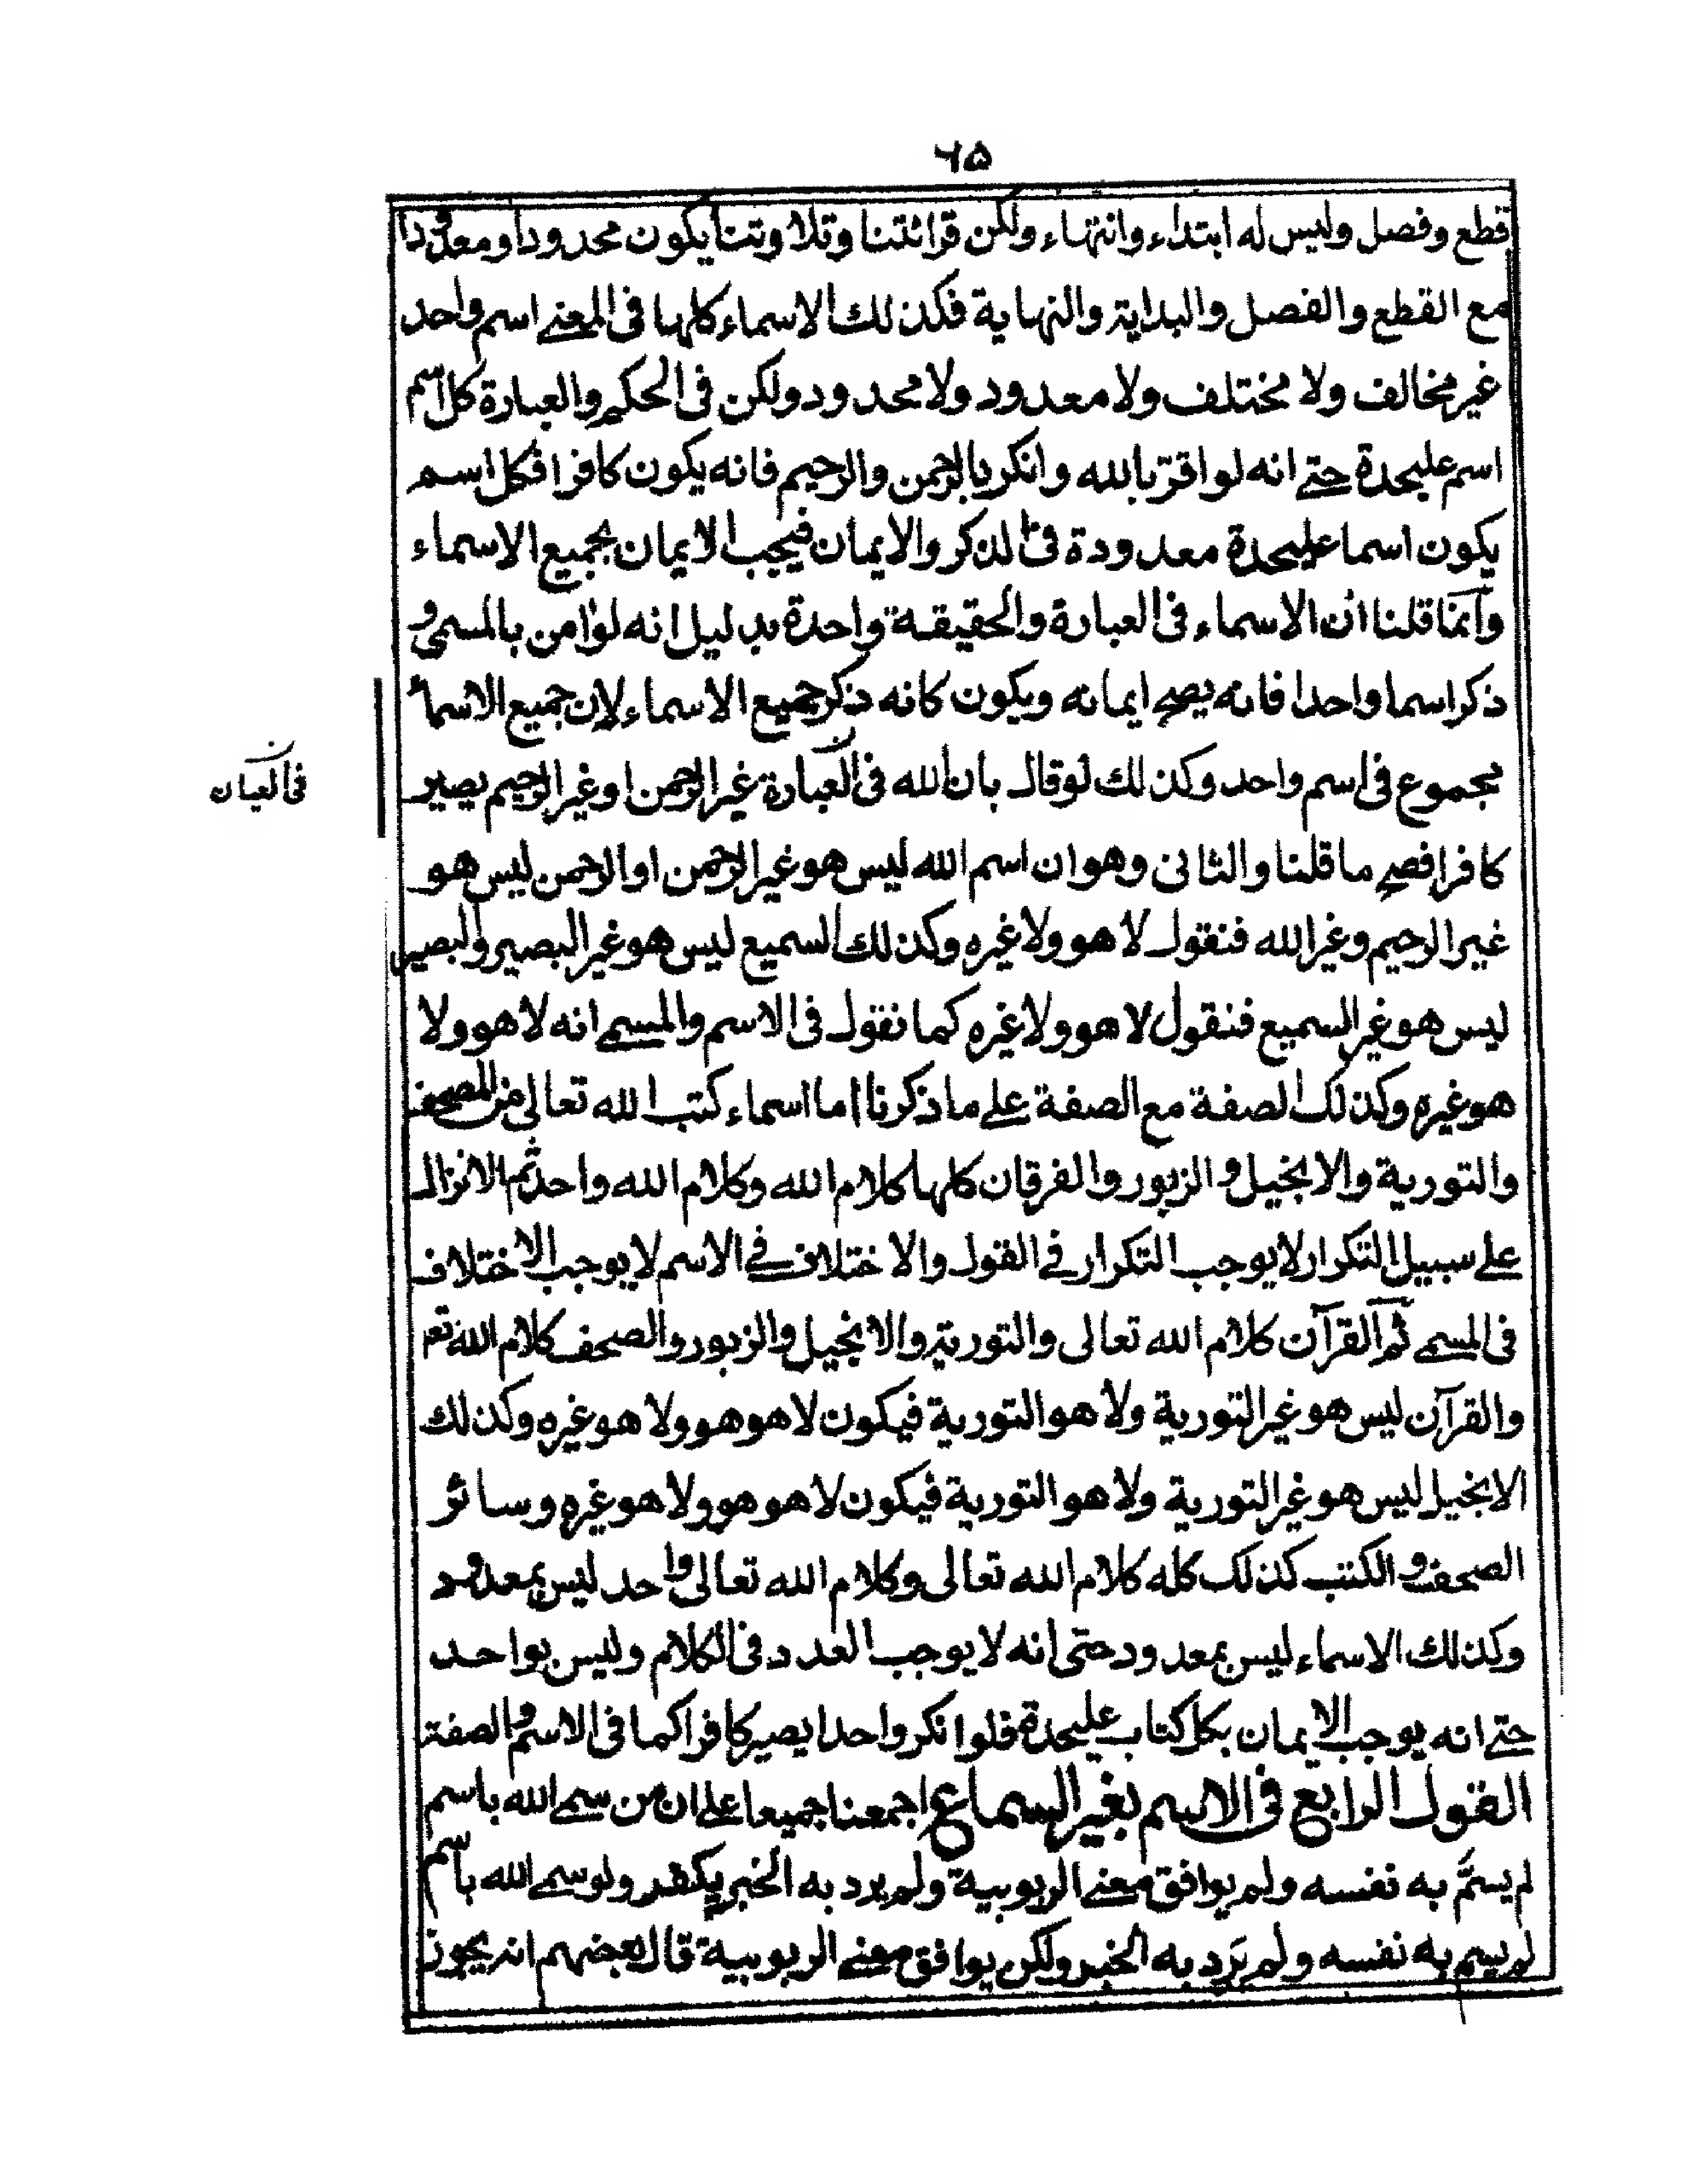 ۶۵
قطع وفصل وليس له ابتداء وانتهاء ولكن قرائتنا وتلاوتنا يكون محدودا ومعدودا
مع القطع والفصل والبداية والنهاية فكذلك الاسماء كلها فى المعنے اسم واحد
غير مخالف ولا مختلف ولا معدود ولا محدود ولكن فى الحكم والعبارة كل اسم
اسم عليحدة حتے انه لو اقرّ بالله وانكر بالرحمن والرحيم فانه يكون كافرا فكل اسم
يكون اسما عليحدة معدودة فى الذكر والايمان فيجب الايمان بجميع الاسماء
وانّما قلنا ان الاسماء فى العبارة والحقيقة واحدة بدليل انه لو امن بالمسمى و
ذكر اسما واحدا فانه يصح ايمانه ويكون كانه ذكر جميع الاسماء لان جميع الاسماء
مجموع فى اسم واحد وكذلك لو قال بان الله فى العبارة غير الرحمن او غير الرحيم يصير
فى العبان
كافرا فصح ما قلنا والثانى وهو ان اسم الله ليس هو غير الرحمن او الرحمن ليس هو
غير الرحيم وغير الله فنقول لا هو ولا غيره وكذلك السميع ليس هو غير البصير والبصير
ليس هو غير السميع فنقول لا هو ولا غيره كما نقول فى الاسم والمسمے انه لا هو ولا
هو غيره وكذلك الصفة مع الصفة علے ما ذكرنا اما اسماء كتب الله تعالى من المصحف
والتورية والانجيل و الزبور والفرقان كلها كلام الله وكلام الله واحد ثم الانزال
علے سبيل التكرار لا يوجب التكرار فے القول والاختلاف فے الاسم لا يوجب الاختلاف
فى المسمے ثم القرآن كلام الله تعالى والتورية والانجيل والزبور والصحف كلام الله تعـ
والقرآن ليس هو غير التورية ولا هو التورية فيكون لا هو هو ولا هو غيره وكذلك
الانجيل ليس هو غير التورية ولا هو التورية فيكون لا هو هو ولا هو غيره وسائر
الصحف و الكتب كذلك كله كلام الله تعالى وكلام الله تعالى واحد ليس بمعدود
وكذلك الاسماء ليس بمعدود حتى انه لا يوجب العدد فى الكلام وليس بواحد
حتے انه يوجب الايمان بكل كتاب عليحدة فلو انكر واحدا يصير كافرا كما فى الاسم والصفة
القول الرابع فى الاسم بغير السماع اجمعنا جميعا علے ان من سمے الله باسم
لم يسمّ به نفسه ولم يوافق معنے الربوبية ولم يرد به الخبر يكفر ولو سمے الله باسم
لم يسم به نفسه ولم يَرد به الخبر ولكن يوافق معنے الربوبية قال بعضهم انه يجوز